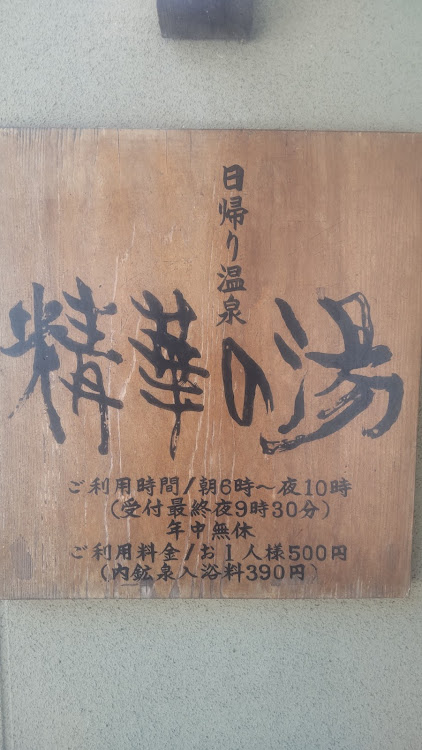 日帰り温泉
精華の湯
ご利用時間/朝6時～夜10時
(受付最終夜9時30分)
年中無休
ご利用料金/お1人様500円
(内鉱泉入浴料390円)